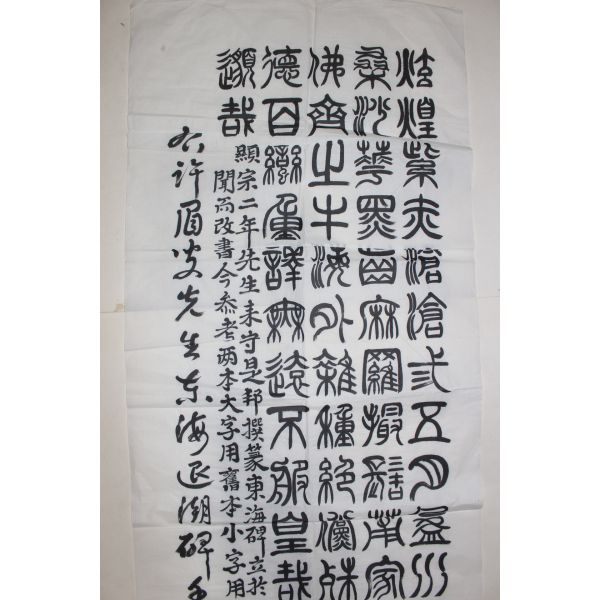 炫煌紫赤滄滄弎五月盈水
桑沙華黑齒麻羅撮髻莆家
佛齊之牛海外雜種絶儻殊
德百蠻重譯無遠不服皇哉
邈哉
顯宗二年先生來守是邦撰篆東海碑立於
聞而改書今參考兩本大字用舊本小字用
右許眉叟先生東海退潮碑